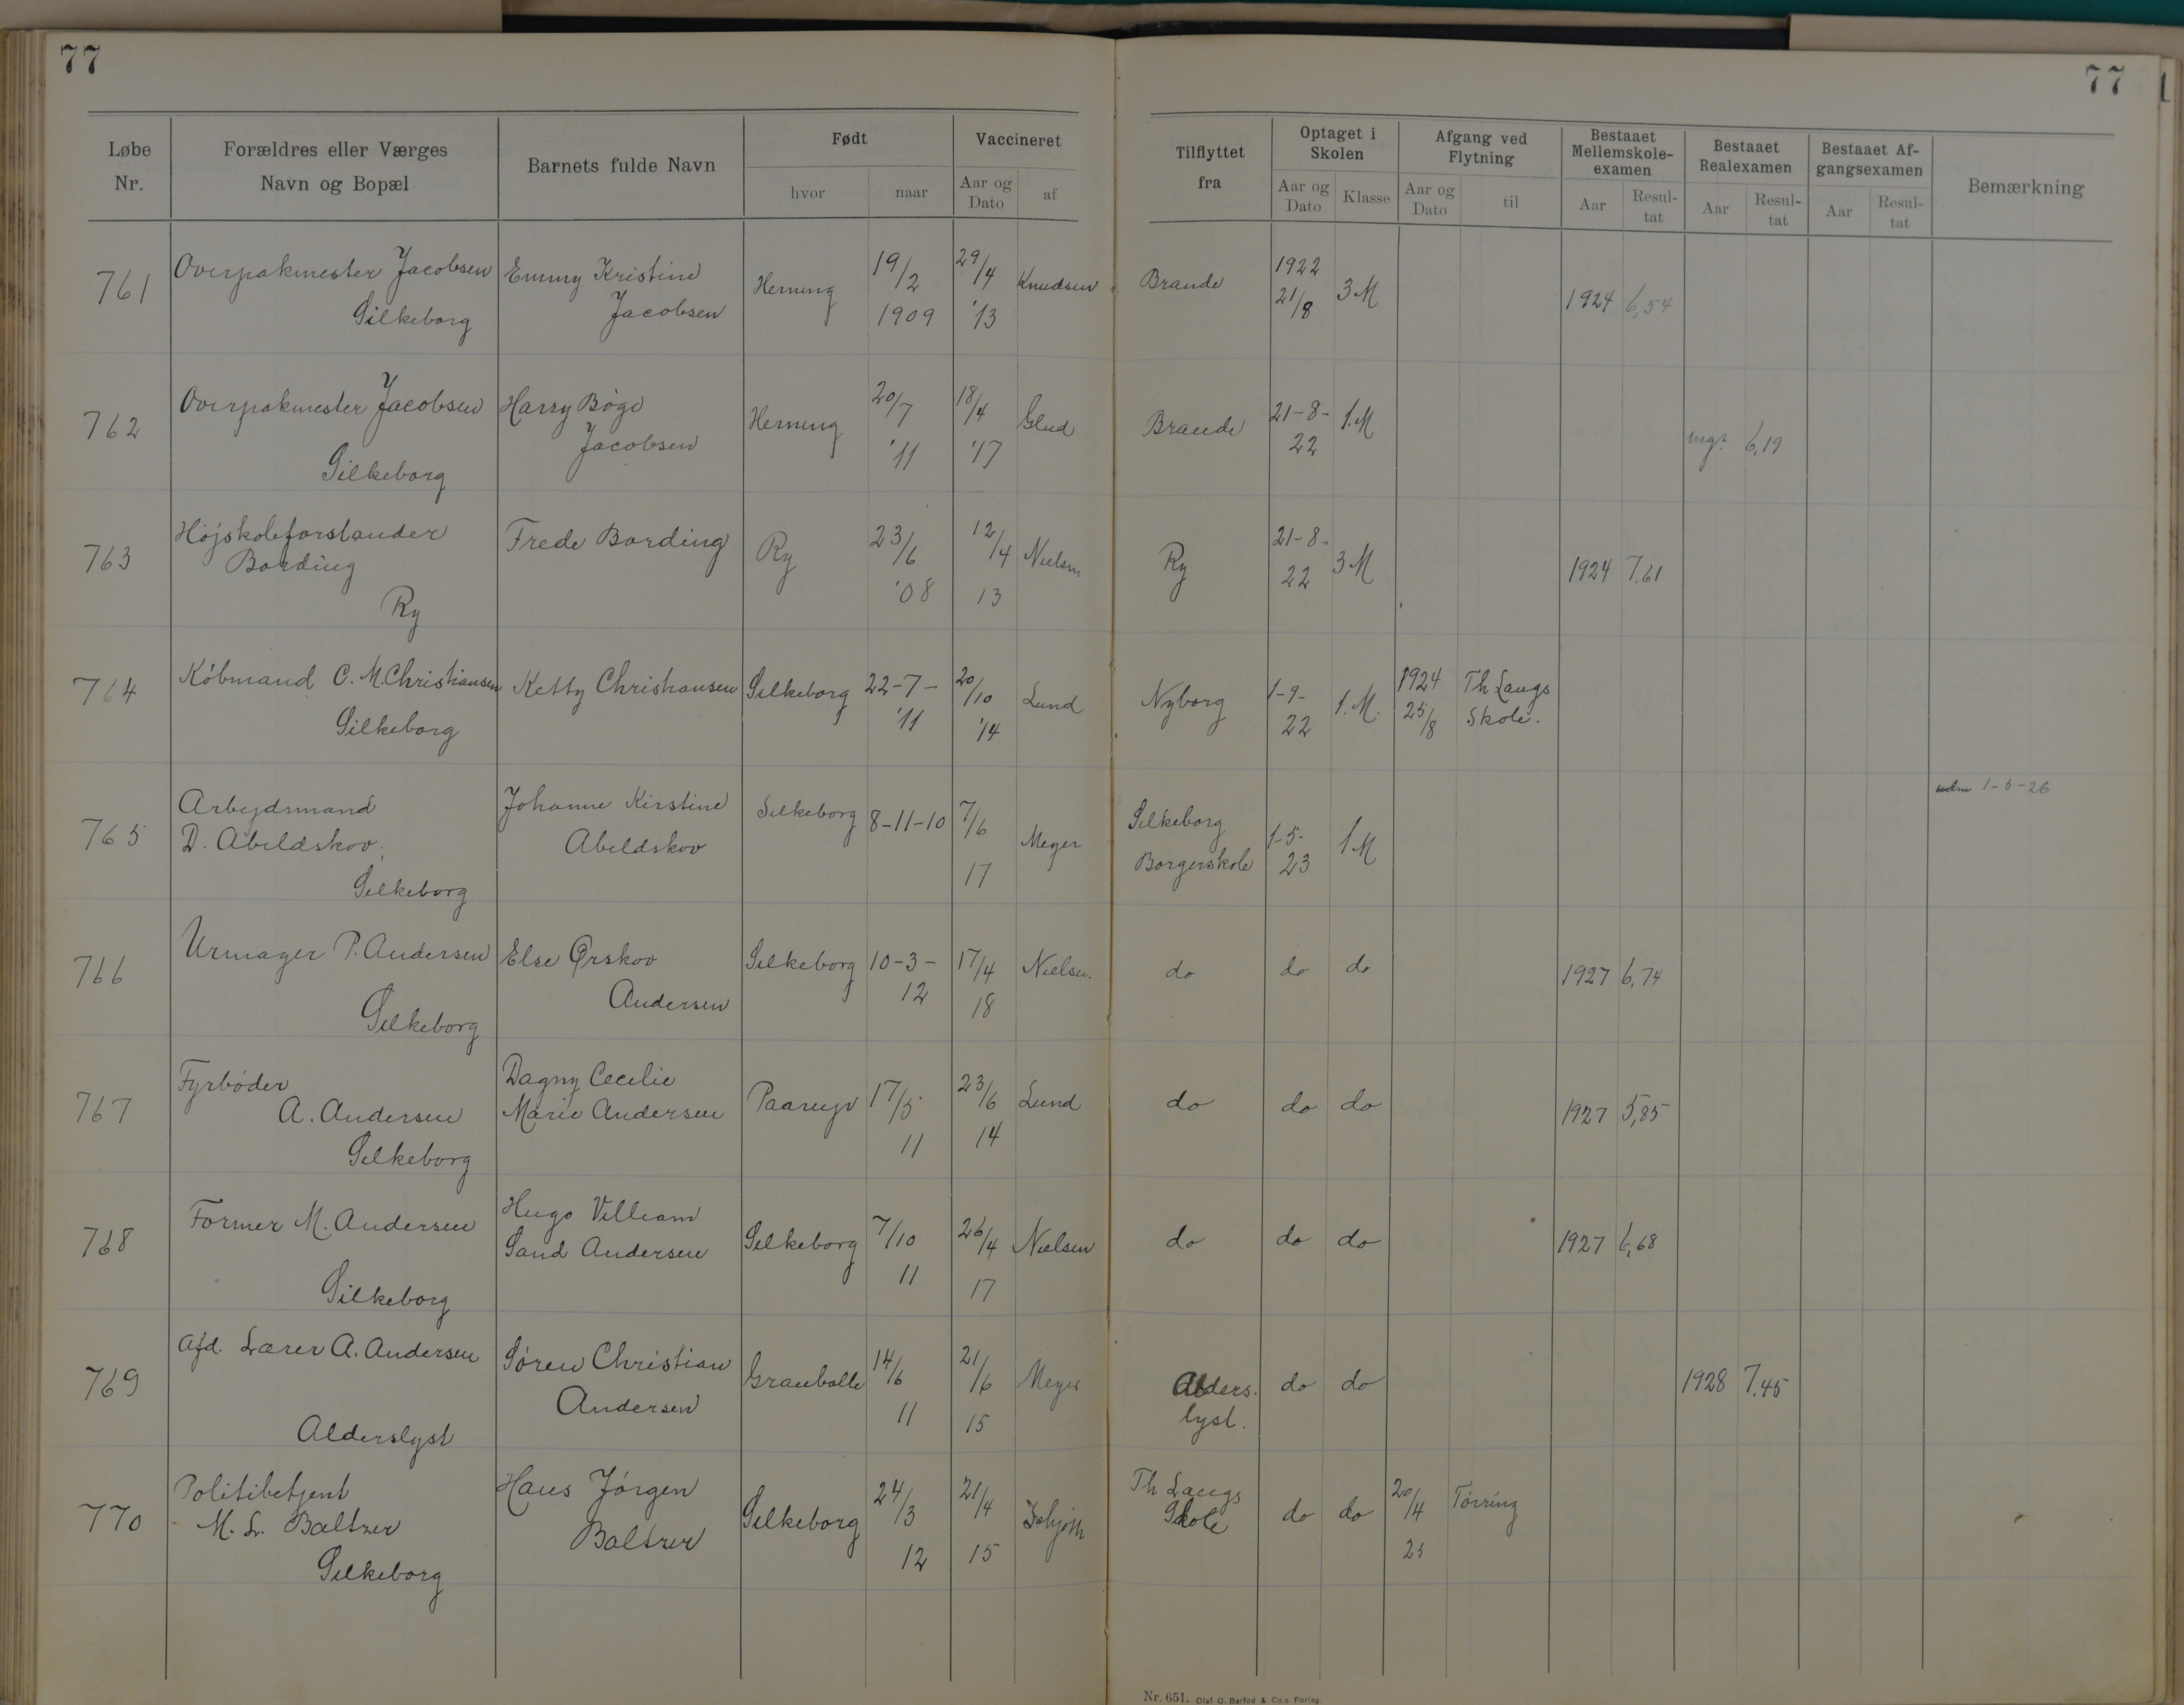 77
77
Løbe Nr.
Forældres eller Værges Navn og Bopæl
Barnets fulde Navn
Født
hvor
naar
Vaccineret
Aar og Dato
af
Tilflyttet fra
Optaget i Skolen
Aar og Dato
Klasse
Afgang ved Flytning
Aar og Dato
til
Bestaaet Mellemskole-examen
Aar
Resul-tat
Bestaaet Realexamen
Aar
Resul-tat
Bestaaet Af-gangsexamen
Aar
Resul-tat
Bemærkning
761 Overpakmester Jacobsen Emmy Kristine Herning 19/2 29/4 Knudsen Brande 1922 3 M 1924 6,54
Silkeborg Jacobsen 1909 '13 21/8
762 Overpakmester Jacobsen Harry Böge Herning 20/7 18/4 Glud Brande 21-8- 1.M 6,19
Silkeborg Jacobsen '11 '17 22
763 Højskoleforstander Frede Bording Ry 23/6 12/4 Nielsen Ry 21-8- 3 M 1924 7.61
Bording '08 13 22
Ry
764 Købmand C. M. Christiansen Ketty Christiansen Silkeborg 22-7- 20/10 Lund Nyborg 1-9- 1.M. 1924 Th Langs
Silkeborg '11 '14 22 25/8 Skole.
765 Arbejdsmand Johanne Kirstine Silkeborg 8-11-10 7/6 Meyer Silkeborg 1-5- 1M 1-5-26
D. Abildskov. Abildskov 17 Borgerskole 23
Silkeborg
766 Urmager P. Andersen Else Ørskov Silkeborg 10-3- 17/4 Nielsen do do do 1927 6,74
Silkeborg Andersen 12 18
767 Fyrbøder Dagny Cecilie Paarup 17/5 23/6 Lund do do do 1927 5,85
A. Andersen Marie Andersen 11 14
Silkeborg
768 Former M. Andersen Hugo Villiam Silkeborg 7/10 26/4 Nielsen do do do 1927 6,68
Silkeborg Sand Andersen 11 17
769 Afd. Lærer A. Andersen Sören Christian Grauballe 14/6 21/6 Meyer Alders. do do 1928 7.45
Alderslyst Andersen 11 15 lyst.
770 Politibetjent Hans Jörgen Silkeborg 24/3 21/4 Th Langs do do 20/4 Törring
M. L. Baltzer Baltzer 12 15 Skole 25
Silkeborg
Nr. 651. Olaf O. Barfod & Co.s Forlag.